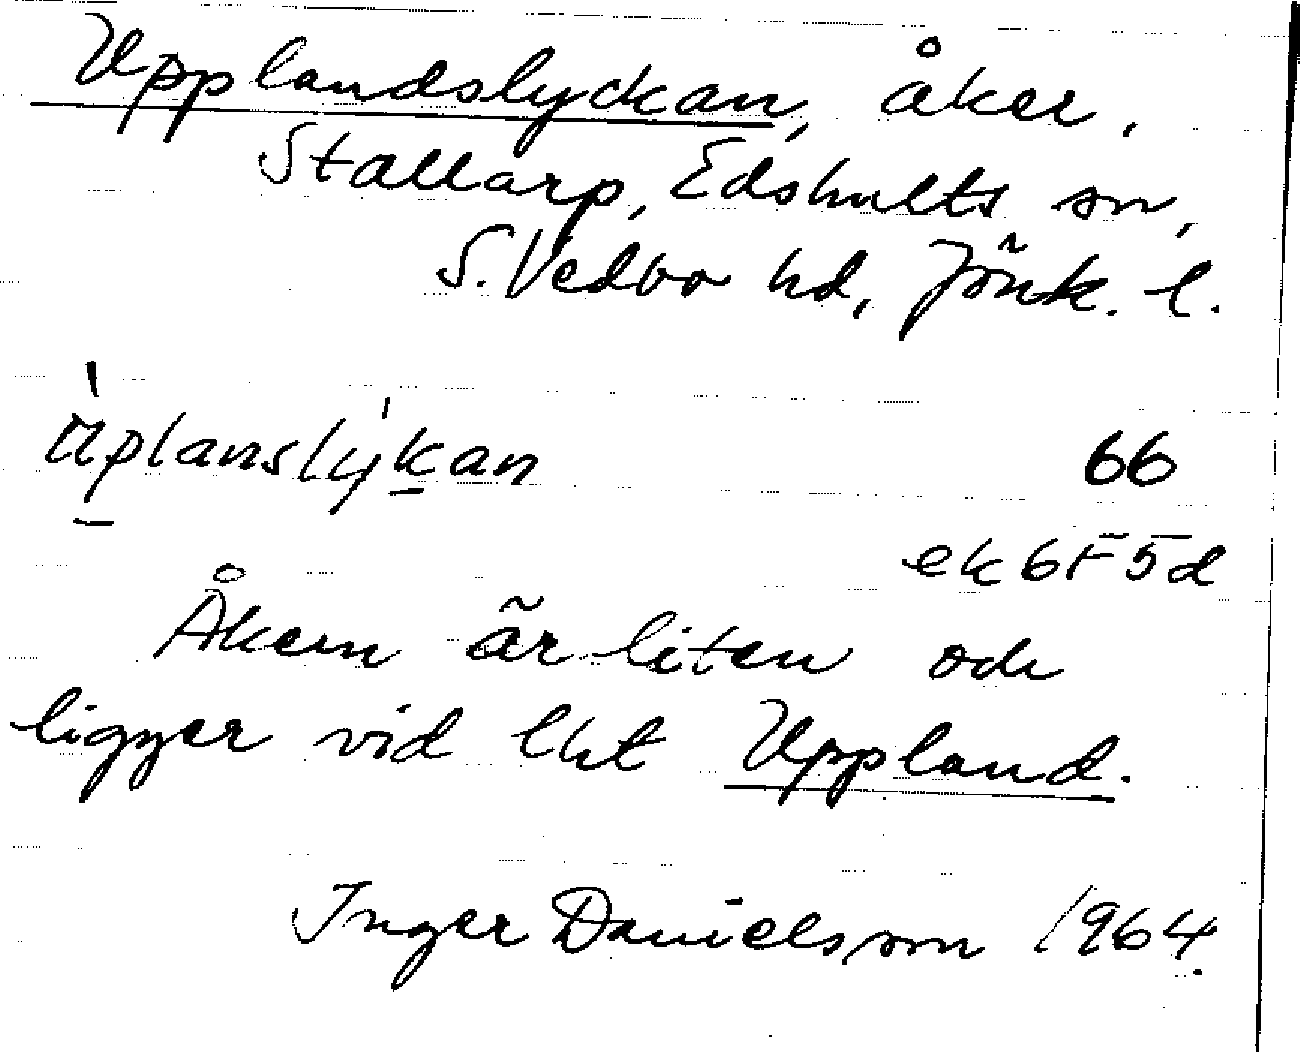 Upplandslyckan, åker,
Stallarp, Edshults sn,
S. Vedbo hd, Jönk. l.
ùplanslýkan 66
ek 6F5d
Åkern är liten och
ligger vid lht Uppland.
Inger Danielsson 1964.